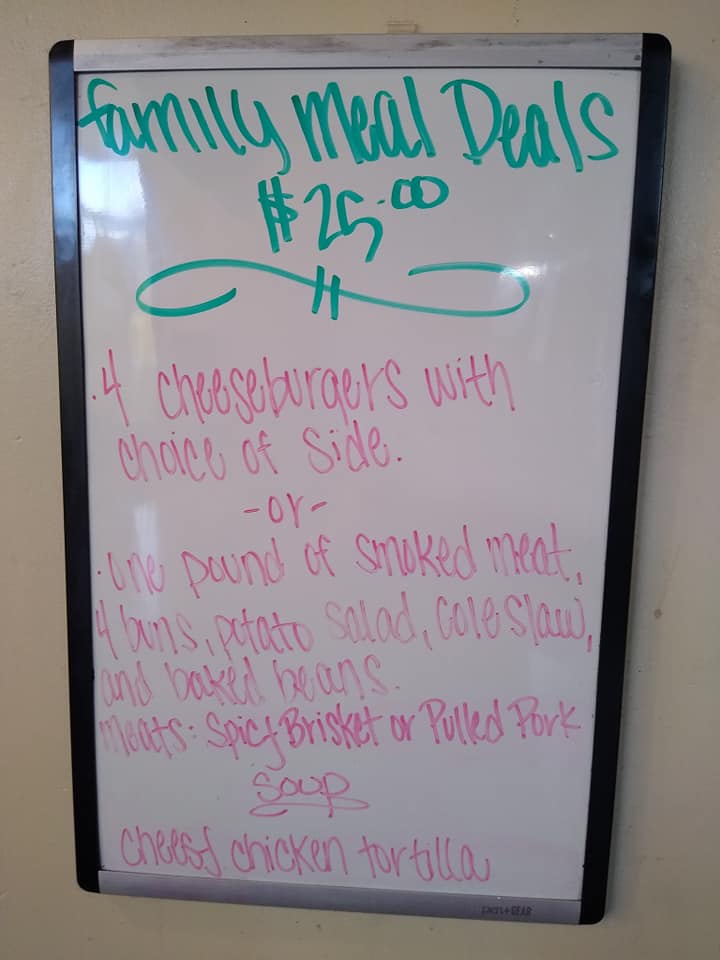 Family Meal Deals
$25.00
·4 cheeseburgers with
choice of side.
-or-
·One pound of smoked meat,
4 buns, potato salad, cole slaw,
and baked beans.
Meats: Spicy Brisket or Pulled Pork
Soup
cheesy chicken tortilla
pen+GEAR